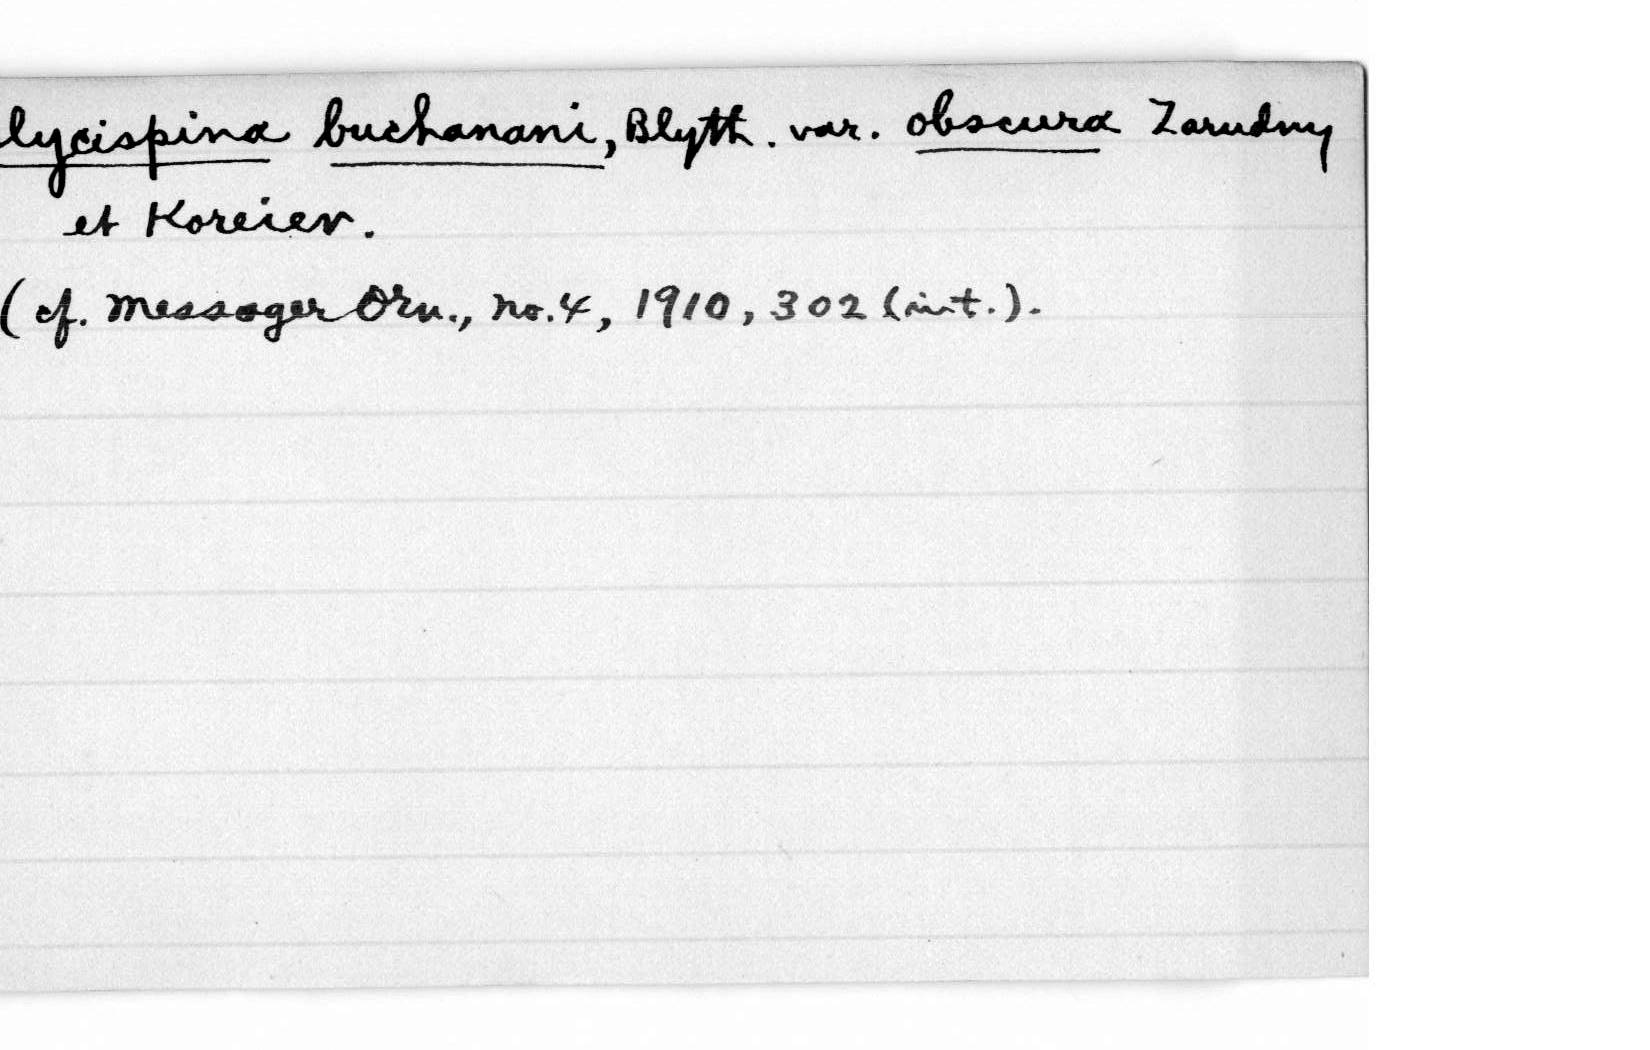 lycispina buchanani, Blyth. var. obscura Zarudny
et Koreiev.
(cf. Messager Orn., no. 4, 1910, 302 (int.).